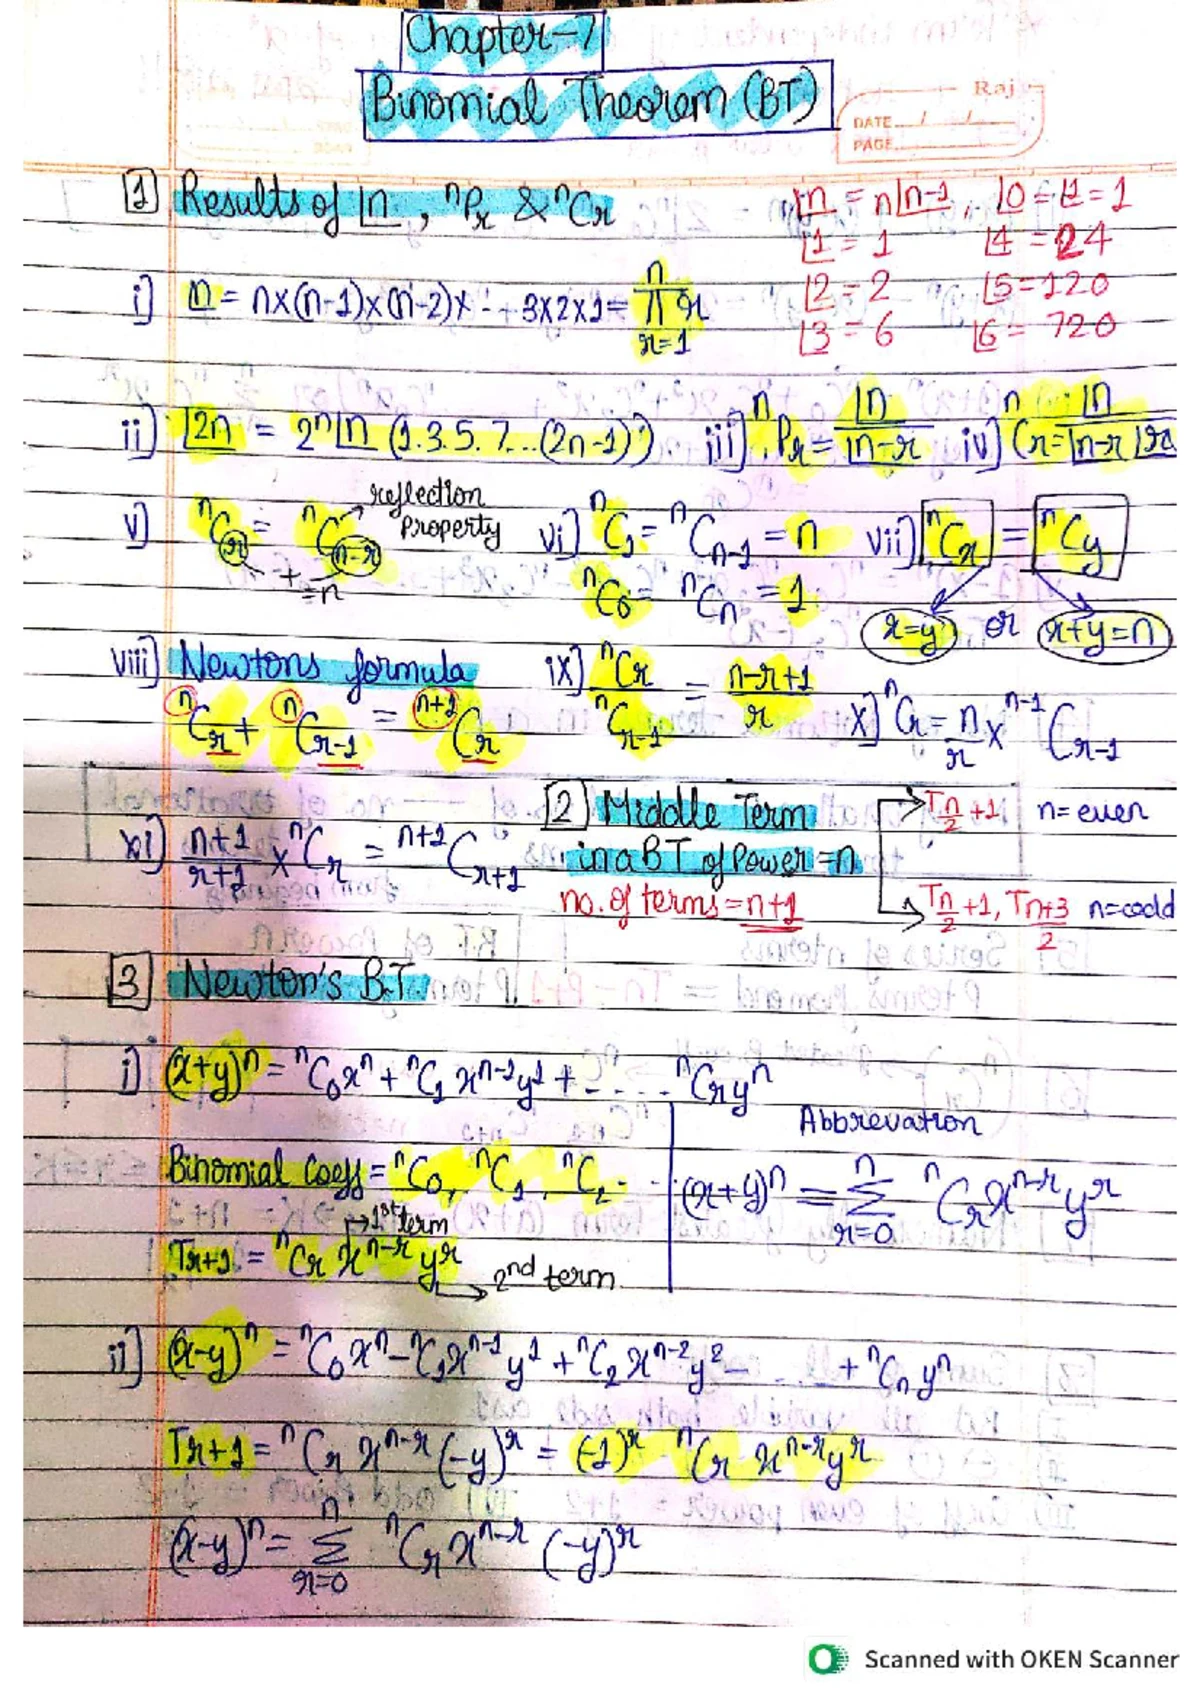 Chapter-7
Binomial Theorem (BT)
Raj
DATE... / /
PAGE.
1 Results of |n, ⁿPr & ⁿCr
|n = n|n-1, |0 = |1 = 1
|1 = 1 |4 = 24
|2 = 2 |5 = 120
|3 = 6 |6 = 720
i] |n = n×(n-1)×(n-2)×--3×2×1 = ⁿΠr=1 r
ii] |2n = 2ⁿ|n (1.3.5.7...(2n-1))
iii] ⁿPr = |n / |n-r
iv] ⁿCr = |n / |n-r |r
v] ⁿCr = ⁿCn-r → reflection property
+ = n
vi] ⁿC1 = ⁿCn-1 = n
ⁿC0 = ⁿCn = 1
vii] ⁿCx = ⁿCy
x=y or x+y=n
viii] Newtons formula
ⁿCr + ⁿCr-1 = ⁿ⁺¹Cr
ix] ⁿCr / ⁿCr-1 = n-r+1 / r
x] ⁿCr = n/r × ⁿ⁻¹Cr-1
xi] n+1 / r+1 × ⁿCr = ⁿ⁺¹Cr+1
2 Middle Term
in a BT of Power = n
no. of terms = n+1
Tn/2 +1 n= even
Tn/2 +1, Tn+3/2 n=odd
3 Newton's B.T.
i] (x+y)ⁿ = ⁿC0xⁿ + ⁿC1 xⁿ⁻¹y¹ + ..... ⁿCryⁿ
Binomial Coeff = ⁿC0, ⁿC1, ⁿC2 - -
Tr+1 = ⁿCr xⁿ⁻ʳ yʳ
→ 1st term
→ 2nd term
Abbrevation
(x+y)ⁿ = ⁿΣr=0 ⁿCr xⁿ⁻ʳ yʳ
ii] (x-y)ⁿ = ⁿC0 xⁿ - ⁿC1xⁿ⁻¹ y¹ + ⁿC2 xⁿ⁻²y² - ... + ⁿCn yⁿ
Tr+1 = ⁿCr xⁿ⁻ʳ (-y)ʳ = (-1)ʳ ⁿCr xⁿ⁻ʳyʳ
(x-y)ⁿ = ⁿΣr=0 ⁿCr xⁿ⁻ʳ (-y)ʳ
Scanned with OKEN Scanner